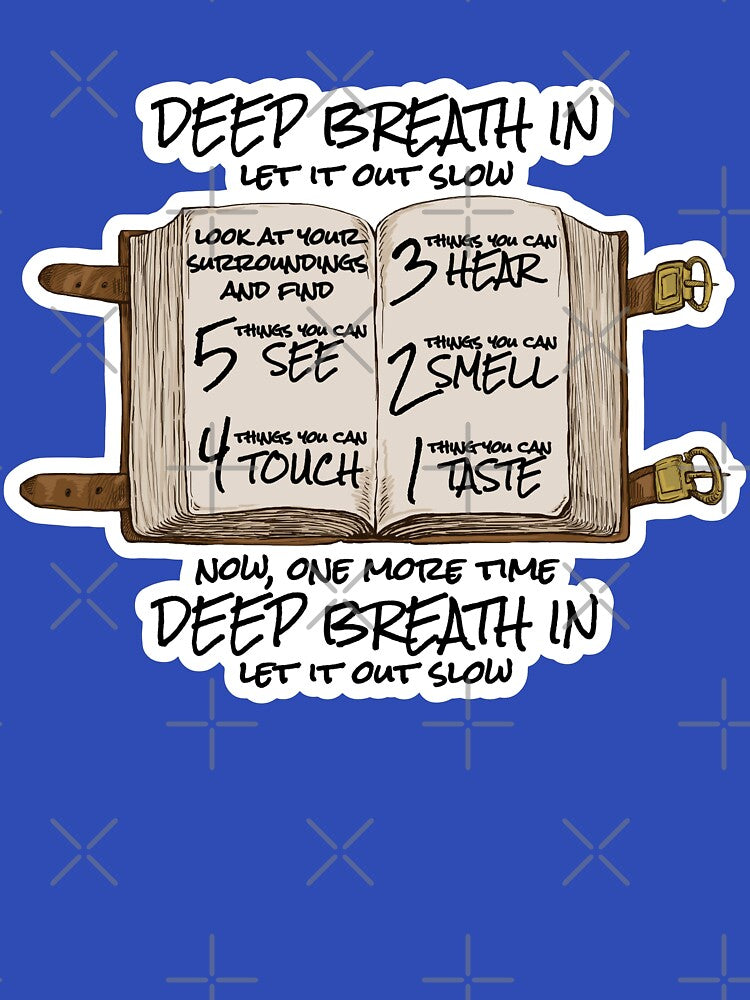 DEEP BREATH IN
LET IT OUT SLOW
LOOK AT YOUR
SURROUNDINGS
AND FIND
5 THINGS YOU CAN
SEE
4 THINGS YOU CAN
TOUCH
3 THINGS YOU CAN
HEAR
2 THINGS YOU CAN
SMELL
1 THING YOU CAN
TASTE
NOW, ONE MORE TIME
DEEP BREATH IN
LET IT OUT SLOW